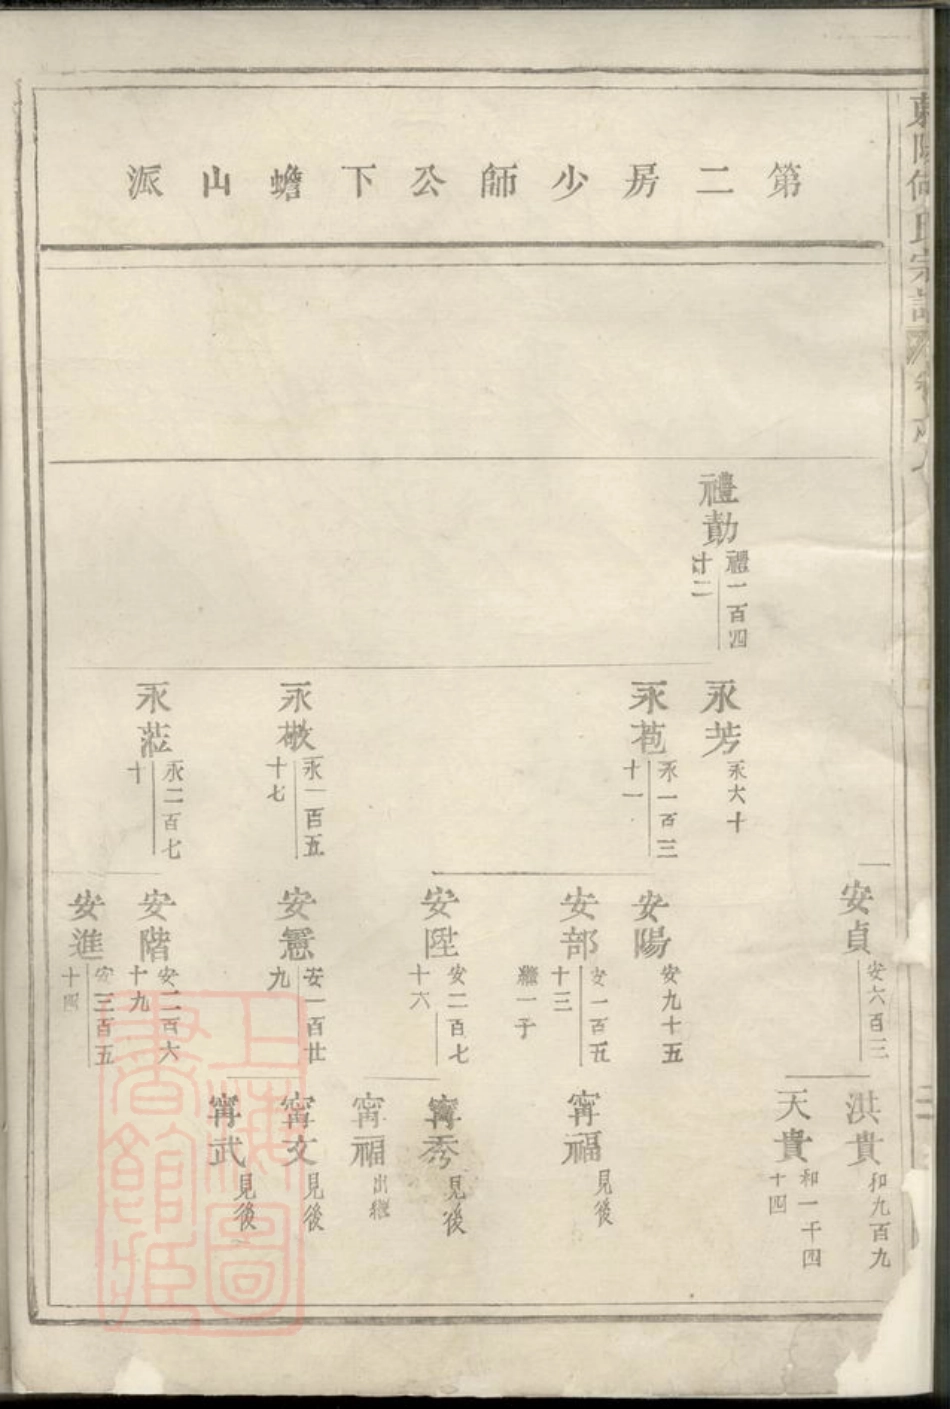 東陽何氏宗譜
第二房少師公下蟾山派
禮勣 禮一百四十二
永芳 永六十
永苞 永一百三十一
永敬 永一百五十七
永蒞 永二百七十
安貞 安六百三
安陽 安九十五
安部 安一百五十三 繼一子
安陞 安二百七十六
安憲 安一百廿九
安階 安二百六十九
安進 安三百五十四
洪貴 和九百九
天貴 和一千四十四
甯福 見後
甯秀 見後
甯福 出繼
甯文 見後
甯武 見後
上海圖書館藏